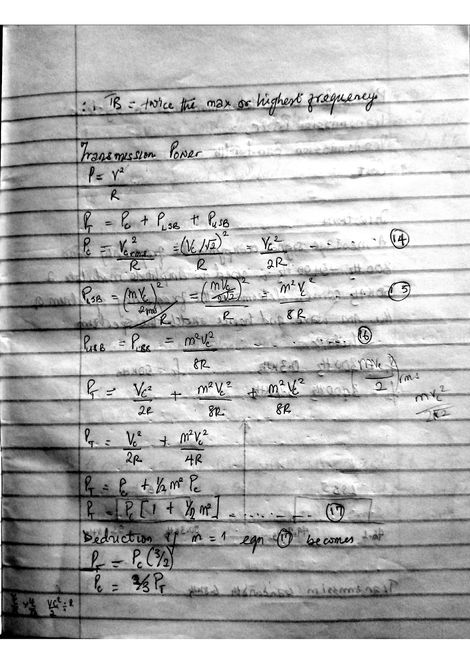 ∴ TB = twice the max or highest frequency
Transmission Power
P = V²/R
P_T = P_C + P_LSB + P_USB
P_C = V_c²rms/R = (V_c/√2)²/R = V_c²/2R - - - (14)
P_LSB = (mV_c/2 rms)²/R = (mV_c/2√2)²/R = m²V_c²/8R (15)
P_USB = P_LSB = m²V_c²/8R - - - - - - (16)
mV_c/2 rms
P_T = V_c²/2R + m²V_c²/8R + m²V_c²/8R
P_T = V_c²/2R + m²V_c²/4R
P_T = P_C + ½ m² P_C
P_T = P_C [1 + ½ m²] - - - - - - (17)
Deduction if m = 1 eqn (17) becomes
P_T = P_C (3/2)
P_C = 2/3 P_T